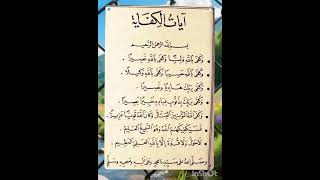 آيَاتُ الْكِفَايَة
بِسْمِ اللهِ الرَّحْمٰنِ الرَّحِيْمِ
وَكَفَى بِاللهِ وَلِيًّا وَكَفَى بِاللهِ نَصِيْرًا
وَكَفَى بِاللهِ حَسِيْبًا وَكَفَى بِاللهِ وَكِيْلًا
وَكَفَى بِرَبِّكَ هَادِيًا وَنَصِيْرًا
وَكَفَى بِرَبِّكَ بِذُنُوْبِ عِبَادِهِ خَبِيْرًا بَصِيْرًا
وَكَفَى اللهُ الْمُؤْمِنِيْنَ الْقِتَالَ وَكَانَ اللهُ قَوِيًّا عَزِيْزًا
فَسَيَكْفِيْكَهُمُ اللهُ وَهُوَ السَّمِيْعُ الْعَلِيْمُ
لَاحَوْلَ وَلَا قُوَّةَ إِلَّا بِاللهِ الْعَلِيِّ الْعَظِيْمِ
وَصَلَّى اللهُ عَلَى سَيِّدِنَا مُحَمَّدٍ وَعَلَى آلِهِ وَصَحْبِهِ وَسَلَّمَ
InShOt